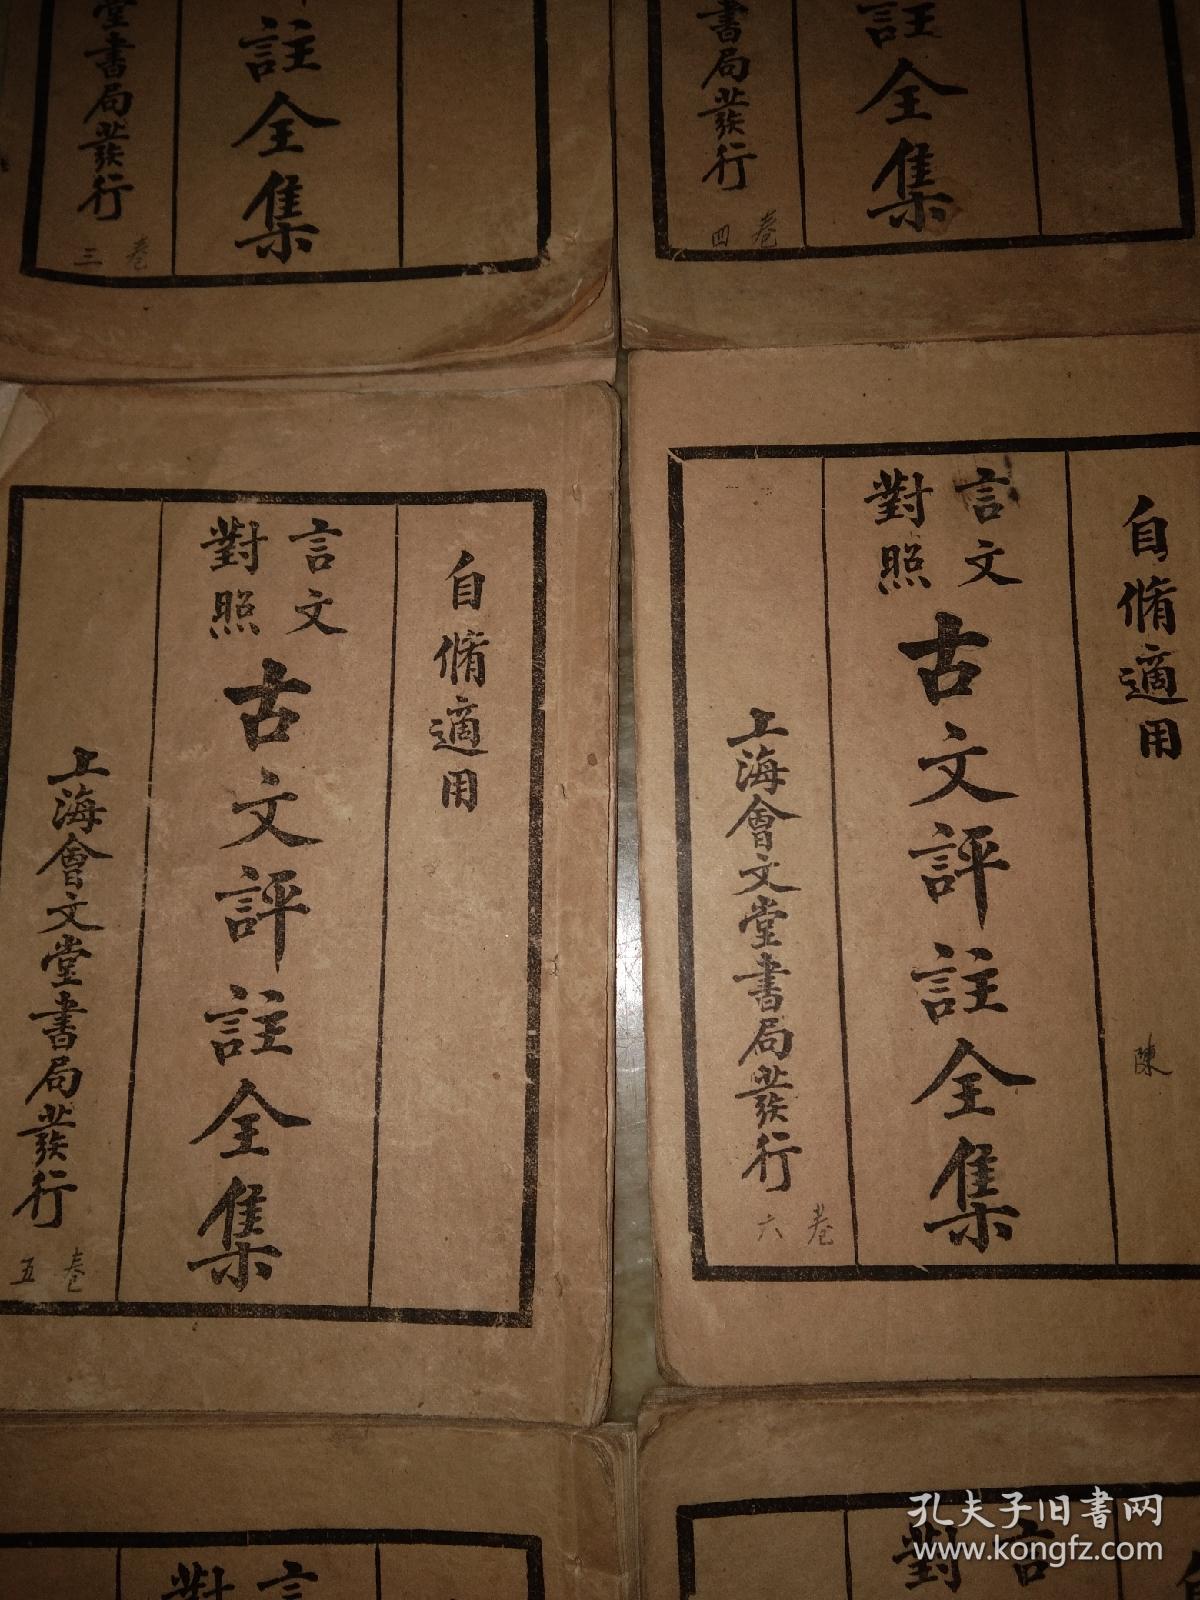 註全集
堂書局發行
卷三
註全集
書局發行
卷四
自脩適用
言文對照
古文評註全集
上海會文堂書局發行
卷五
自脩適用
陳
言文對照
古文評註全集
上海會文堂書局發行
卷六
言
對
自
言
對
孔夫子旧書网
www.kongfz.com